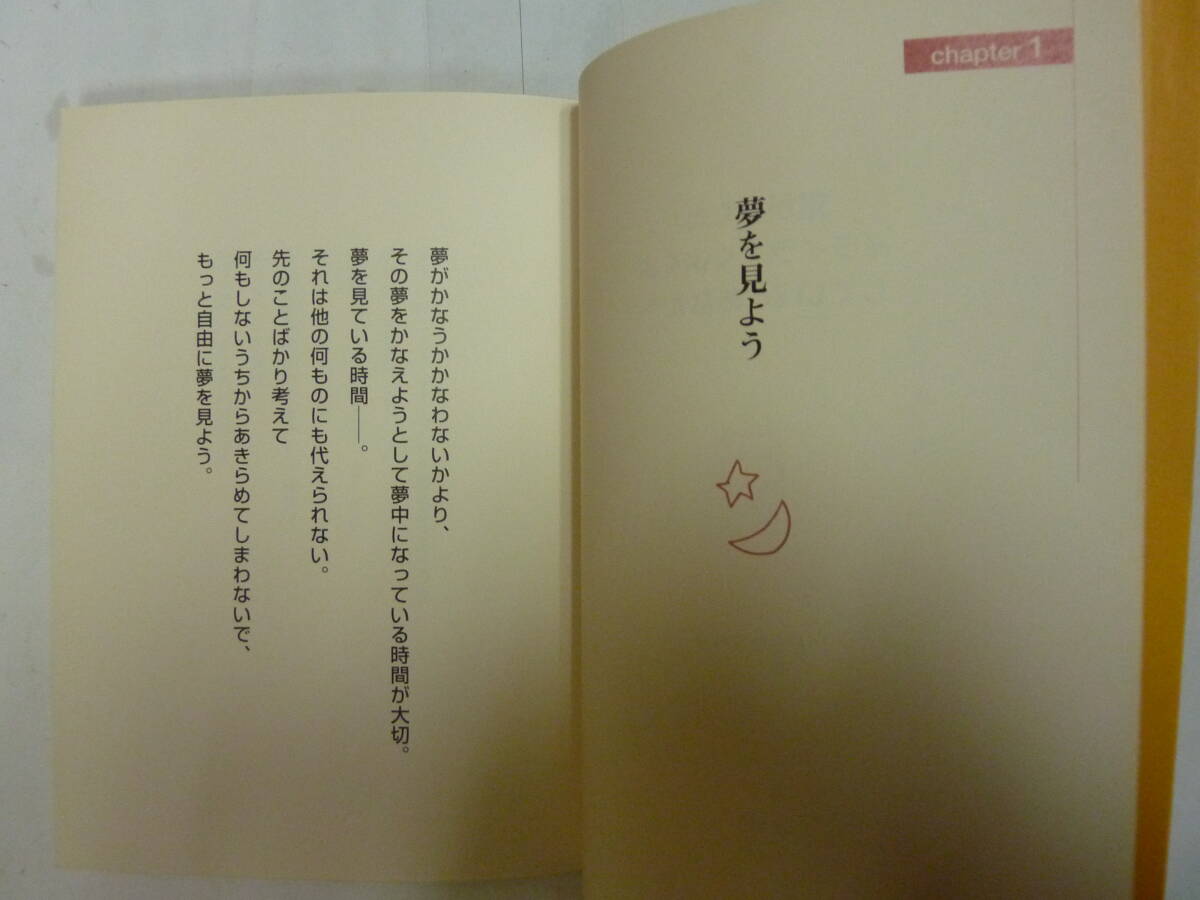 chapter 1
夢を見よう
夢がかなうかかなわないかより、
その夢をかなえようとして夢中になっている時間が大切。
夢を見ている時間――。
それは他の何ものにも代えられない。
先のことばかり考えて
何もしないうちからあきらめてしまわないで、
もっと自由に夢を見よう。